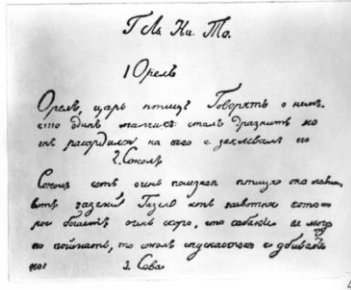 1 Орелъ
Орелъ, царь птицъ Говорятъ о немъ.
что одинъ мальчикъ сталъ дразнить его
онъ расердился на него и заклевалъ его
2. Соколъ
Соколъ есть очень полезная птица она лови
етъ газелей Газель есть животное кото
рое бегаетъ очень скоро, что собаки не могу
поймать, то соколъ пускается и убиваетъ
3. Сова